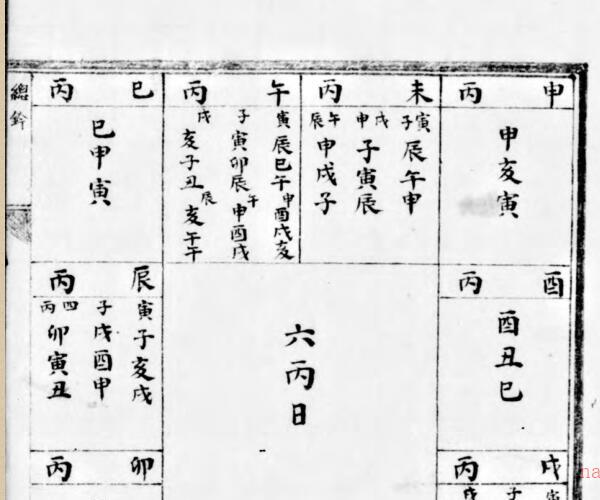 申 丙
申亥寅
未 丙
子寅 辰午申
申戌 子寅辰
辰午 申戌子
午 丙
寅 辰巳午 申酉戌亥
子 寅卯辰 午 申酉戌
戌 亥子丑 辰 亥午午
巳 丙
巳申寅
總鈐
酉 丙
酉丑巳
六丙日
辰 丙
寅子亥戌
子戌酉申
四丙 卯寅丑
戌 丙
寅
子
戌
卯 丙
na